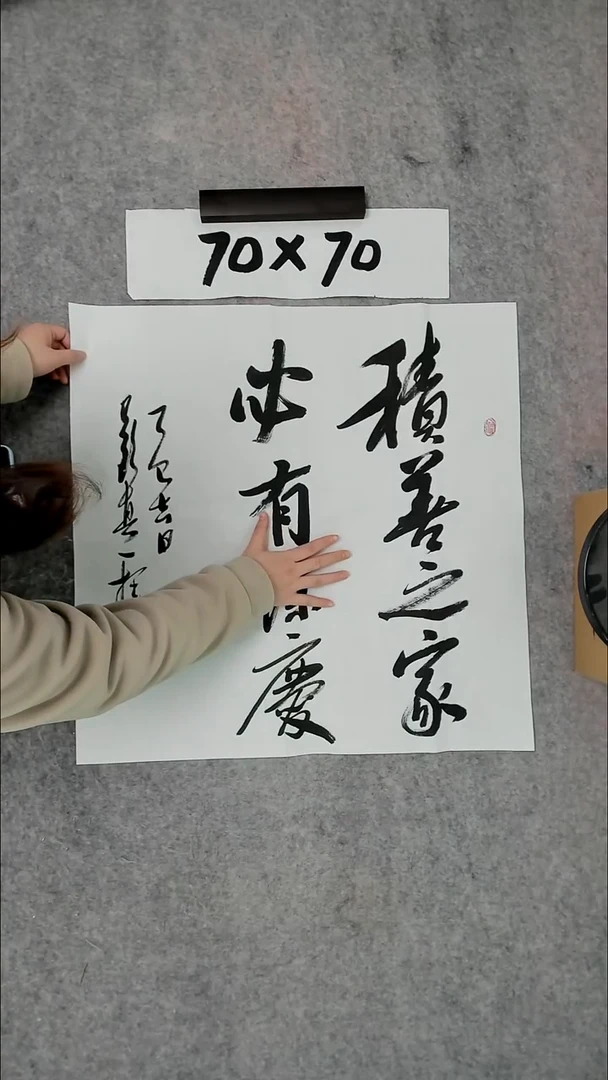 70×70
積善之家
必有慶
乙巳吉日